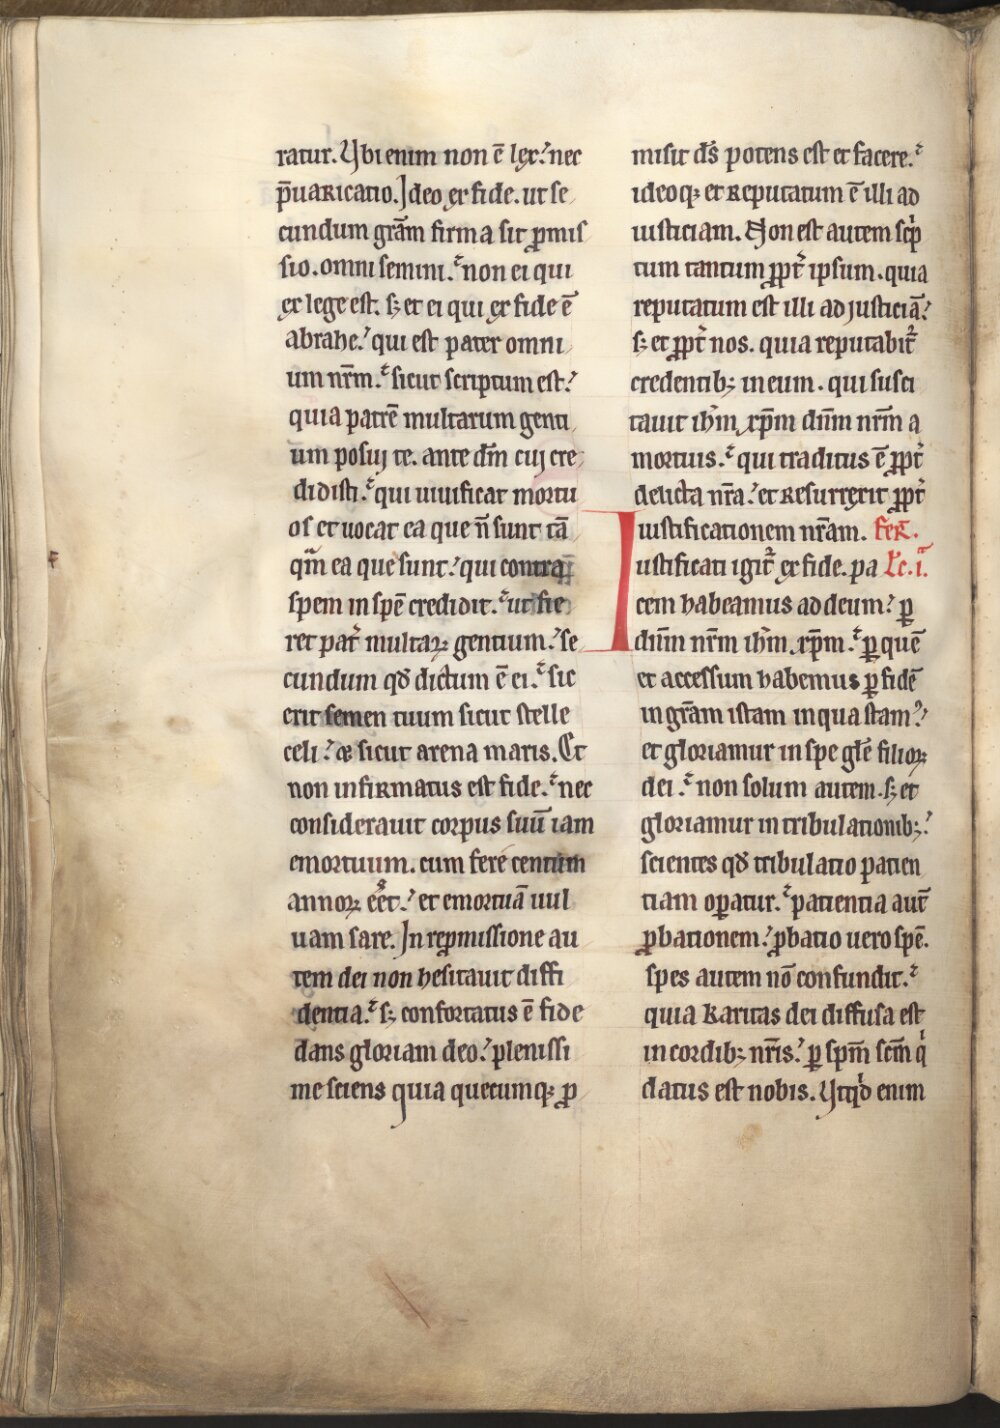 ratur. Ubi enim non ē lex: nec
p̄uaricatio. Ideo ex fide. ut se
cundum grām firma sit ꝓmis
sio. omni semini. non ei qui
ex lege est. sꝫ et ei qui ex fide ē
abrahe: qui est pater omni
um nrm̄. sicut scriptum est:
quia patrē multarum genti
um posui te. ante dm̄ cui cre
didisti. qui uiuificat mortu
os et uocat ea que n̄ sunt tā
qm̄ ea que sunt: qui contra
spem in spē credidit. ut fie
ret pat̄ multaꝝ gentium: se
cundum qđ dictum ē ei. sic
erit semen tuum sicut stelle
celi: & sicut arena maris. Et
non infirmatus est fide. nec
considerauit corpus suū iam
emortuum. cum fere centum
annoꝝ eēt: et emortuā uul
uam sare. In repromissione au
tem dei non hesitauit diffi
dentia. sꝫ confortatus ē fide
dans gloriam deo: plenissi
me sciens quia quecumqꝫ ꝓ
misit ds̄ potens est et facere.
ideoqꝫ et reputatum ē illi ad
iusticiam. Non est autem scͥp
tum tantum ꝓpt̄ ipsum. quia
reputatum est illi ad justiciā:
sꝫ et ꝓpt̄ nos. quia reputabit᷑
credentibꝫ in eum. qui susci
tauit ih̄m xp̄m dn̄m nr̄m a
mortuis. qui traditus ē ꝓpt̄
delicta nr̄a: et resurrexit ꝓpt̄
iustificationem nr̄am. Fer̄.
Iustificati igit᷑ ex fide. pa Lc̄. i.
cem habeamus ad deum: ꝑ
dn̄m nr̄m ih̄m xp̄m. ꝑ quē
et accessum habemus ꝑ fidē
in grām istam in qua stam᷒:
et gloriamur in spe glē filioꝝ
dei. non solum autem. sꝫ et
gloriamur in tribulationibꝫ:
scientes qđ tribulatio patien
tiam oꝑatur. patientia aut̄
ꝓbationem: ꝓbatio uero spē.
spes autem nō confundit.
quia karitas dei diffusa est
in cordibꝫ nr̄is: ꝑ spm̄ scm̄ qͥ
datus est nobis. Utqͥd enim